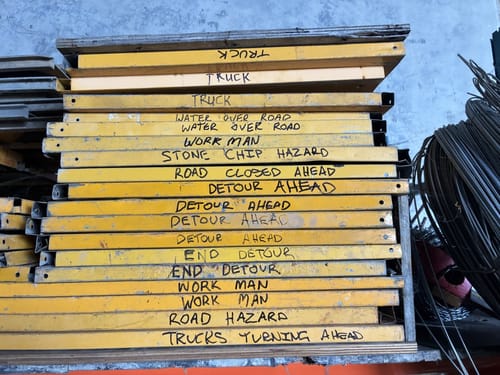 TRUCK
TRUCK
TRUCK
WATER OVER ROAD
WATER OVER ROAD
WORK MAN
STONE CHIP HAZARD
ROAD CLOSED AHEAD
DETOUR AHEAD
DETOUR AHEAD
DETOUR AHEAD
DETOUR AHEAD
END DETOUR
END DETOUR
WORK MAN
WORK MAN
ROAD HAZARD
TRUCKS TURNING AHEAD